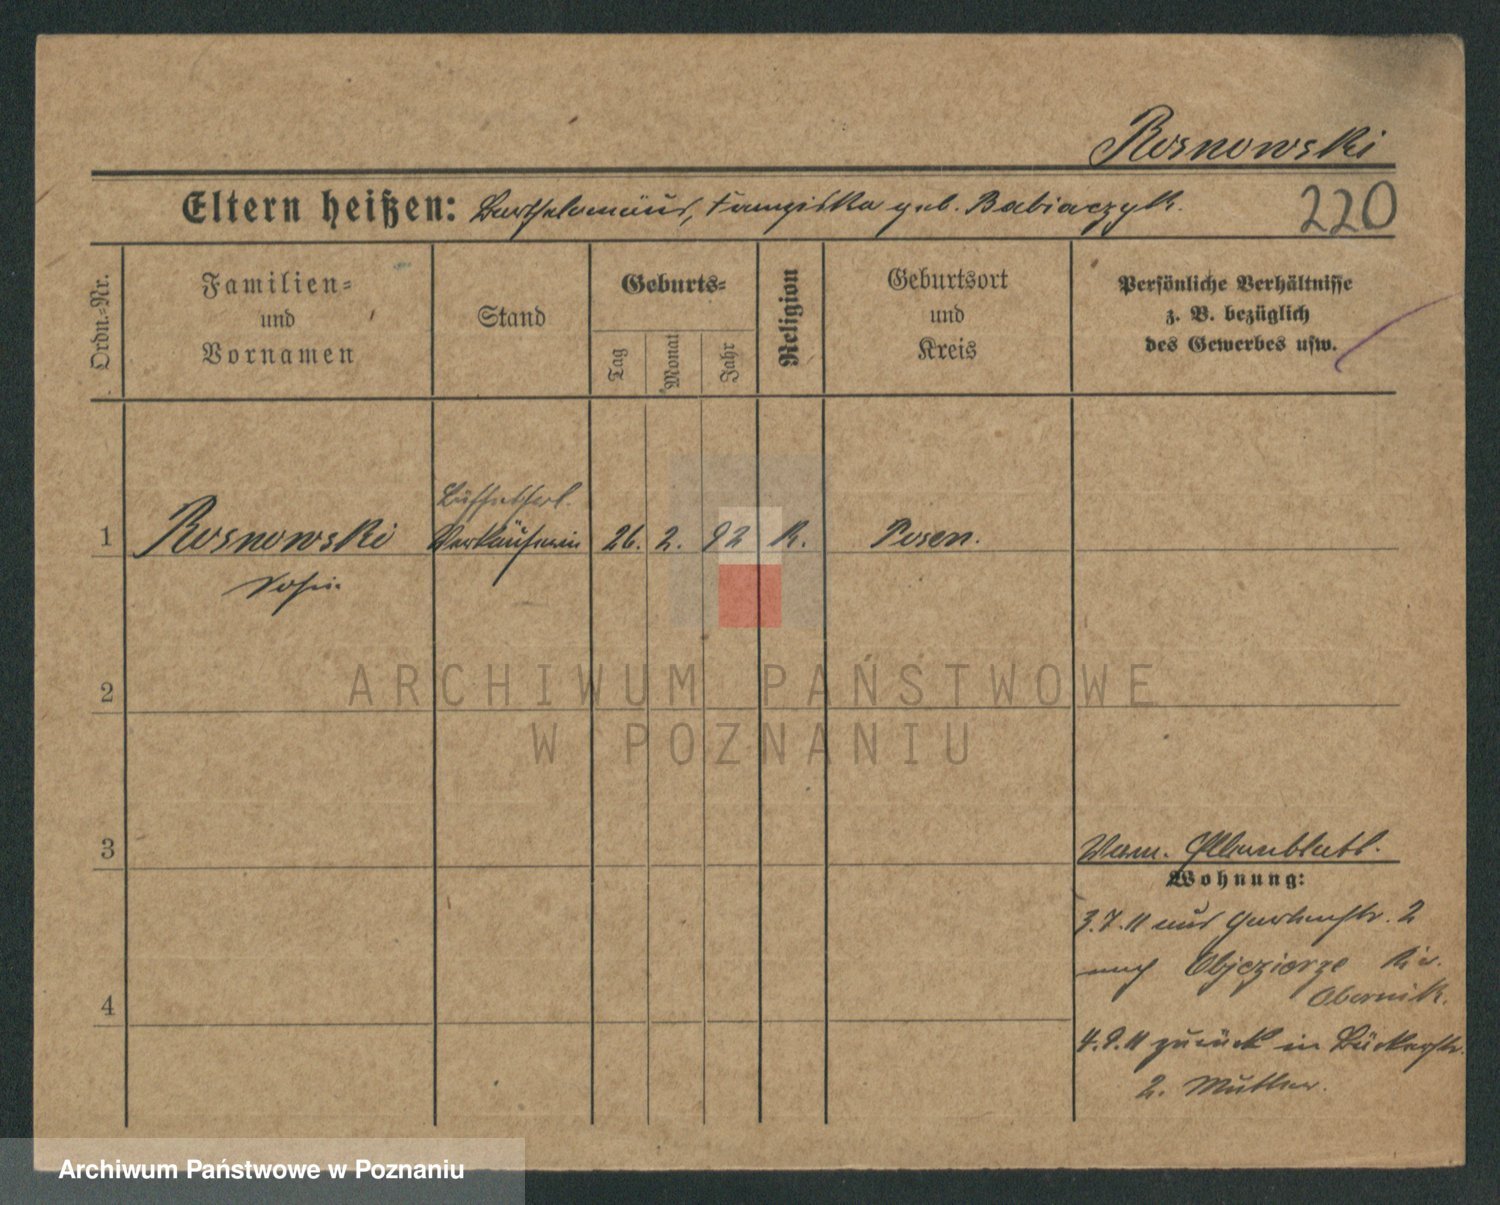 Rosnowski
Eltern heißen: Bartholomäus, Franziska geb. Babiaczyk.
220
Ordn.-Nr.
Familien-
und
Vornamen
Stand
Geburts-
Tag
Monat
Jahr
Religion
Geburtsort
und
Kreis
Persönliche Verhältnisse
z. B. bezüglich
des Gewerbes usw.
Büffetfrl.
1 Rosnowski Verkäuferin 26. 2. 92 K. Posen.
Sofie
2
3
Wohnung:
3.7.11 aus Gartenstr. 2
nach Objezierze Kr.
Obornik.
4
4.9.11 zurück in Bäckerstr.
2. Mutter.
ARCHIWUM PAŃSTWOWE
W POZNANIU
Archiwum Państwowe w Poznaniu